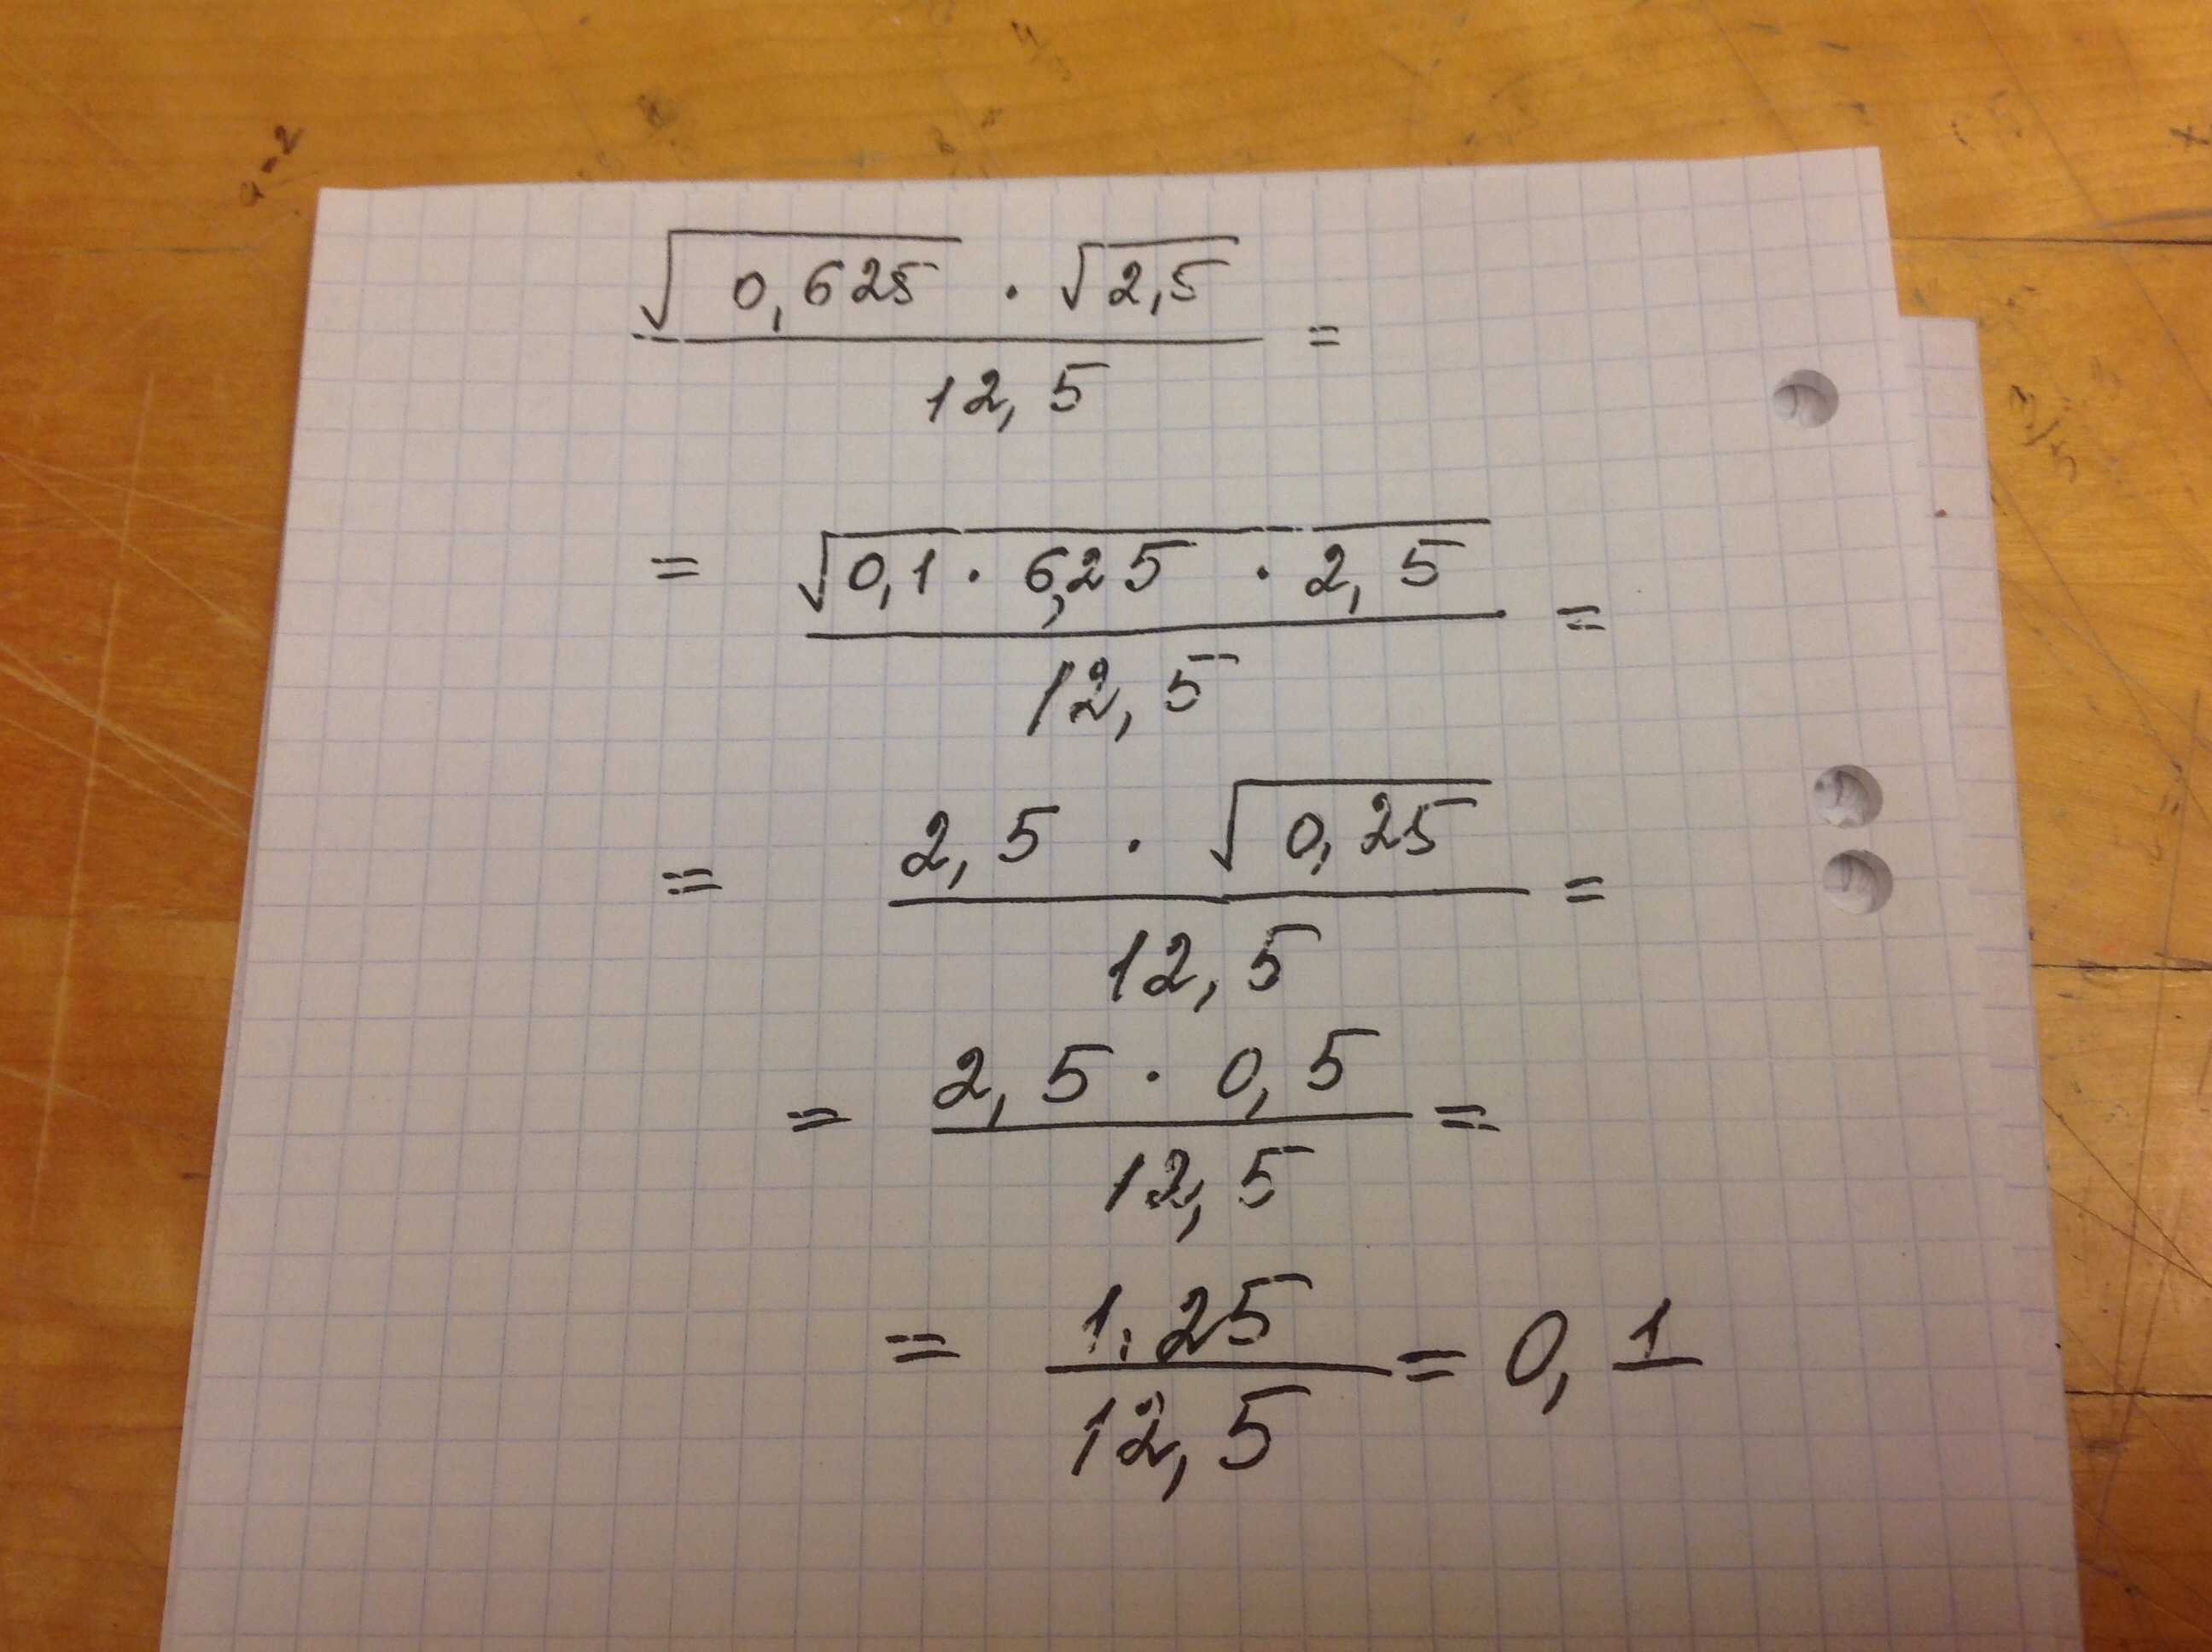 a-2
√0,625 · √2,5 =
12,5
= √0,1 · 6,25 · 2,5 =
12,5
= 2,5 · √0,25 =
12,5
= 2,5 · 0,5 =
12,5
= 1,25 = 0,1
12,5